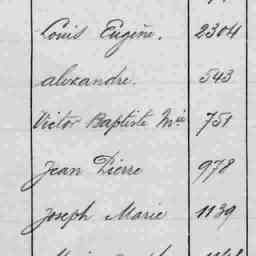 Louis Eugène. 2304
alexandre. 543
Victor Baptiste Mie 751
Jean Pierre 978
Joseph Marie 1139